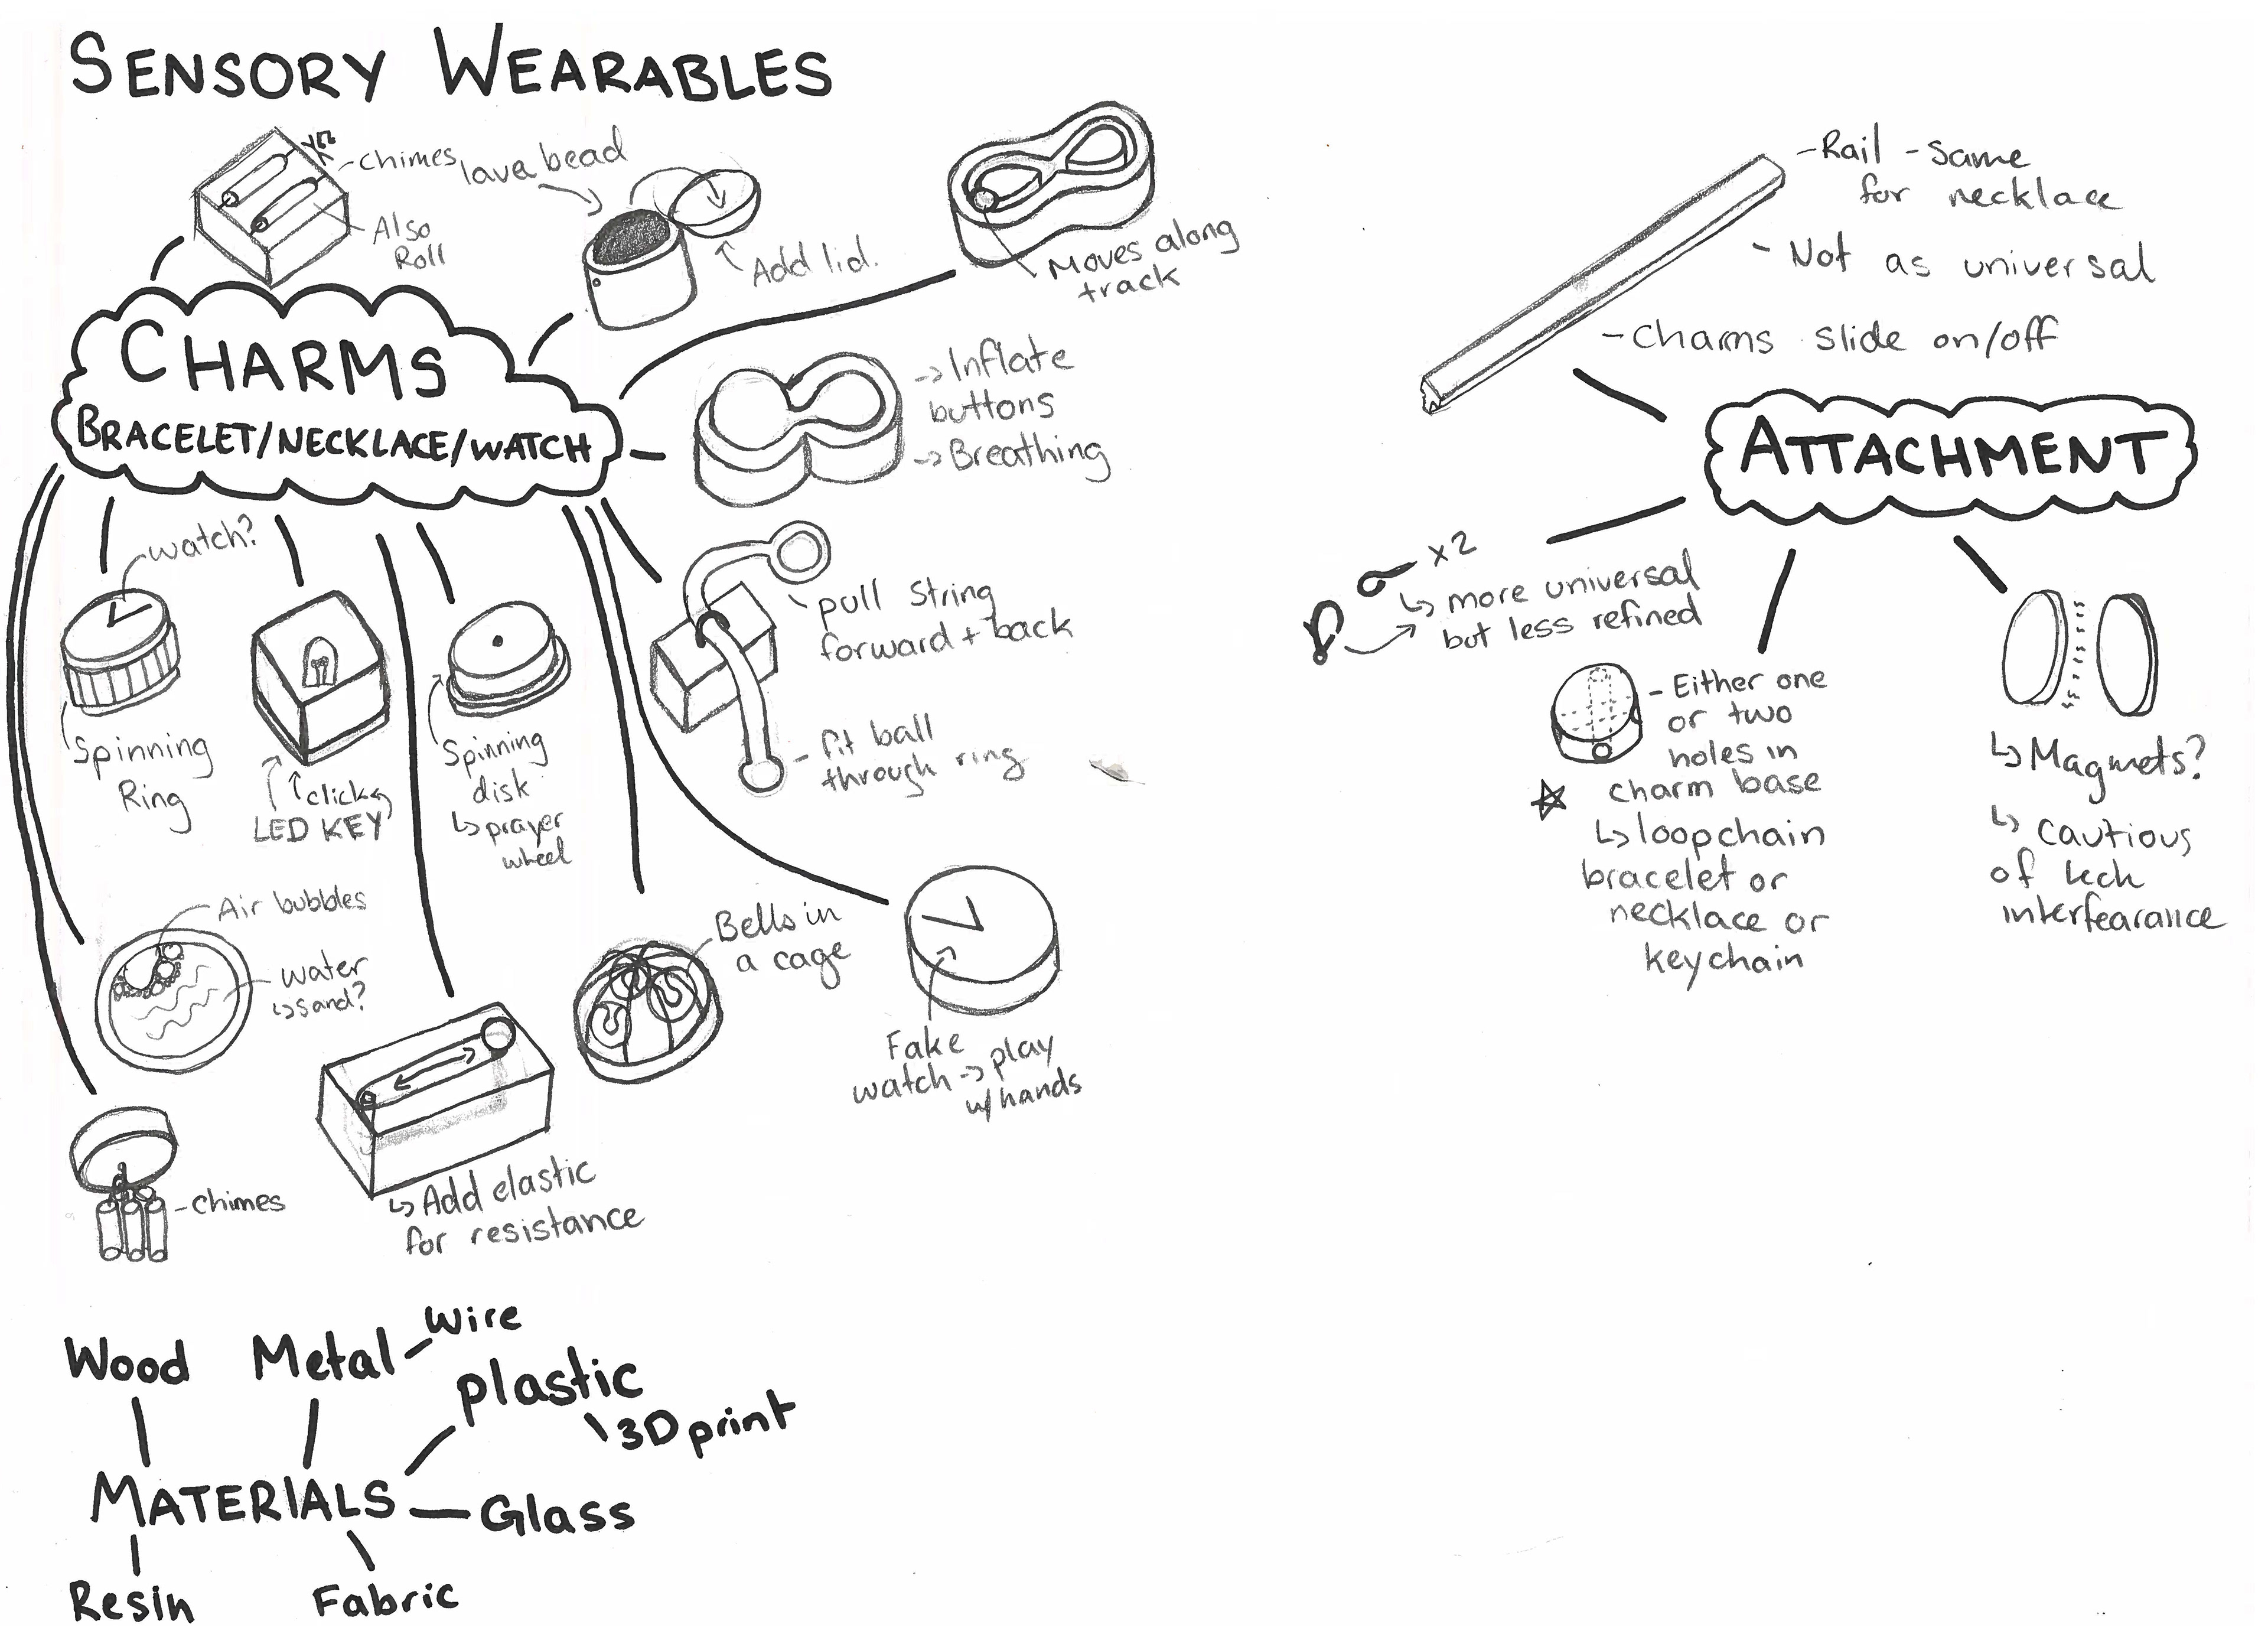 SENSORY WEARABLES
- Chimes
Also
Roll
lava bead
Add lid.
Moves along
track
CHARMS
BRACELET/NECKLACE/WATCH
-> Inflate
buttons
-> Breathing
watch?
Spinning
Ring
↑click↰
LED KEY
Spinning
disk
↳ prayer
wheel
pull string
forward + back
- fit ball
through ring
Air bubbles
water
↳ sand?
Bells in
a cage
Fake
watch -> play
w/ hands
- Chimes
↳ Add elastic
for resistance
- Rail - Same
for necklace
- Not as universal
- Charms slide on/off
ATTACHMENT
x2
↳ more universal
but less refined
- Either one
or two
holes in
☆ charm base
↳ loopchain
bracelet or
necklace or
keychain
↳ Magnets?
↳ cautious
of tech
interfearance
Wood
Metal - Wire
plastic
3D print
MATERIALS
Glass
Resin
Fabric